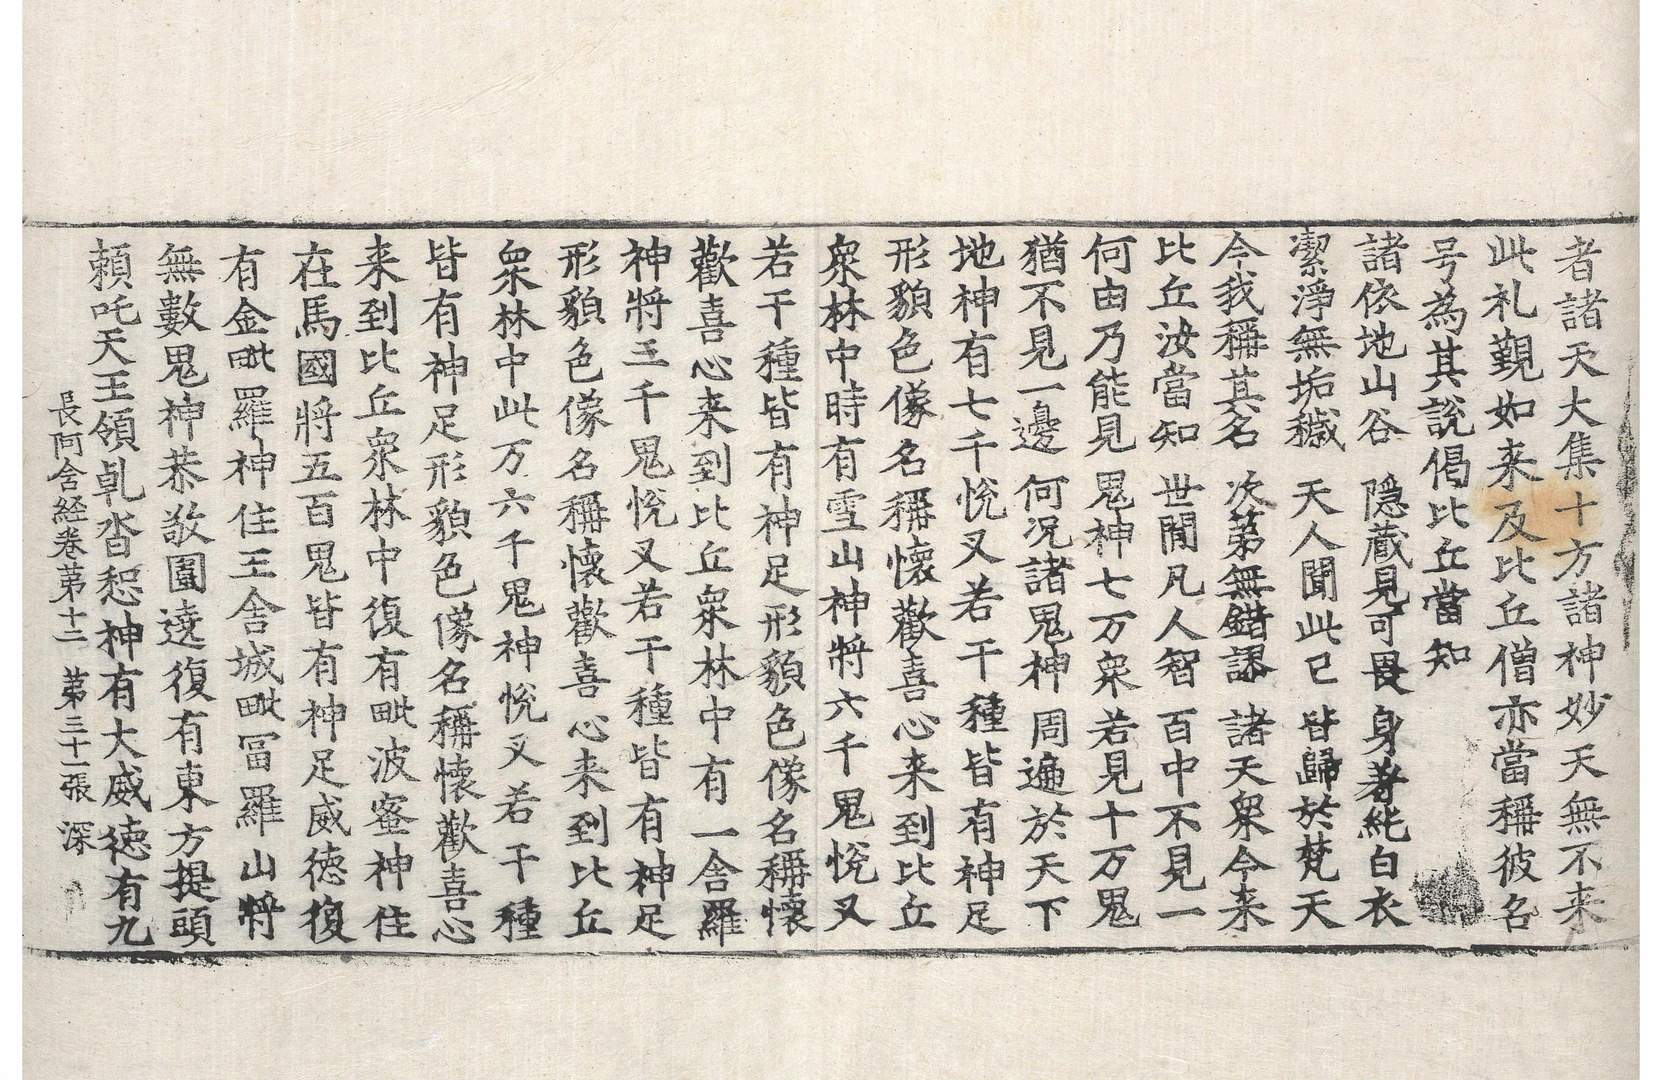 者諸天大集十方諸神妙天無不来
此礼覲如来及比丘僧亦當稱彼名
号為其說偈比丘當知
諸依地山谷　隐蔵見可畏　身著純白衣
潔淨無垢穢　天人聞此已　皆歸於梵天
今我稱其名　次第無錯謬　諸天衆今来
比丘汝當知　世閒凡人智　百中不見一
何由乃能見　鬼神七万衆　若見十万鬼
猶不見一邊　何况諸鬼神　周遍於天下
地神有七千悅叉若干種皆有神足
形貌色像名稱懷歡喜心来到比丘
衆林中時有雪山神將六千鬼悅叉
若干種皆有神足形貌色像名稱懷
歡喜心来到比丘衆林中有一舍羅
神將三千鬼悅叉若干種皆有神足
形貌色像名稱懷歡喜心来到比丘
衆林中此万六千鬼神悅叉若干種
皆有神足形貌色像名稱懷歡喜心
来到比丘衆林中復有毗波蜜神住
在馬國將五百鬼皆有神足威德復
有金毗羅神住王舍城毗冨羅山將
無數鬼神恭敬圍遶復有東方提頭
頼吒天王領乹沓惒神有大威德有九
長阿含経卷苐十二　苐三十一張　深